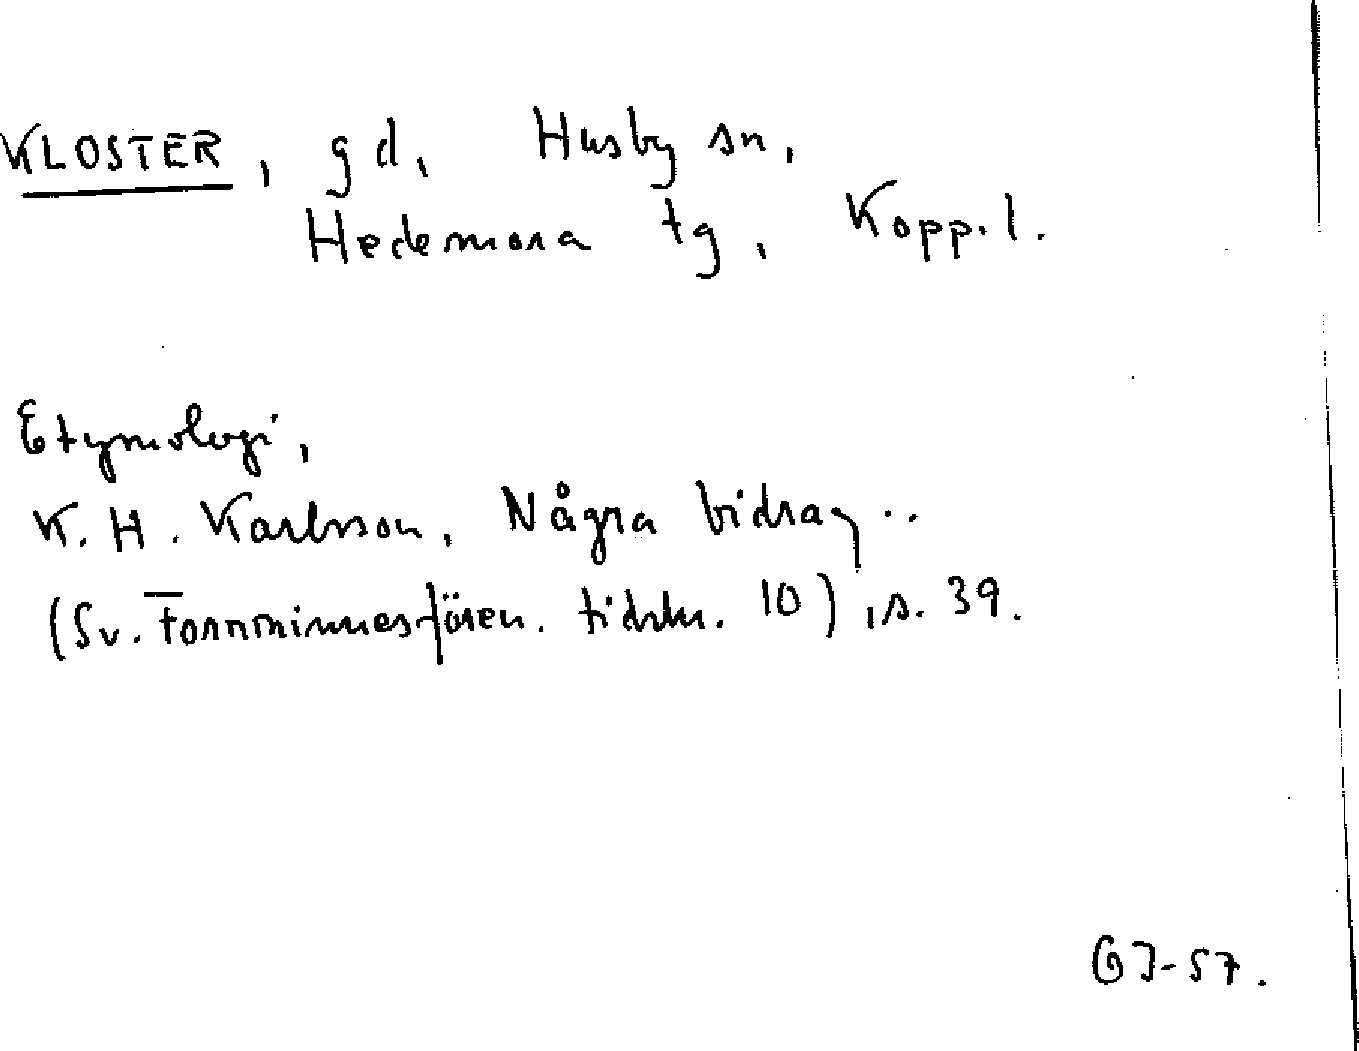 KLOSTER, gd, Husby sn,
Hedemora tg, Kopp.l.
Etymologi,
K. H. Karlsson, Några bidrag..
(Sv. Fornminnesfören. tidskr. 10), s. 39.
GJ-57.